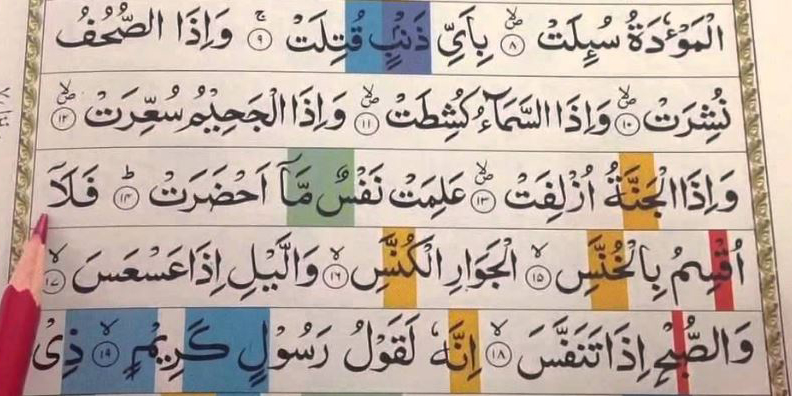 الْمَوْءٗدَةُ سُئِلَتْ ۪ۙ ﴿۸﴾ بِاَيِّ ذَنْۢبٍ قُتِلَتْ ۚ ﴿۹﴾ وَاِذَا الصُّحُفُ
نُشِرَتْ ۪ۙ ﴿۱۰﴾ وَاِذَا السَّمَآءُ كُشِطَتْ ۪ۙ ﴿۱۱﴾ وَاِذَا الْجَحِيْمُ سُعِّرَتْ ۪ۙ ﴿۱۲﴾
وَاِذَا الْجَنَّةُ اُزْلِفَتْ ۪ۙ ﴿۱۳﴾ عَلِمَتْ نَفْسٌ مَّآ اَحْضَرَتْ ؕ ﴿۱۴﴾ فَلَآ
اُقْسِمُ بِالْخُنَّسِ ۙ ﴿۱۵﴾ الْجَوَارِ الْكُنَّسِ ۙ ﴿۱۶﴾ وَالَّيْلِ اِذَا عَسْعَسَ ۙ ﴿۱۷﴾
وَالصُّبْحِ اِذَا تَنَفَّسَ ۙ ﴿۱۸﴾ اِنَّهٗ لَقَوْلُ رَسُوْلٍ كَرِيْمٍ ۙ ﴿۱۹﴾ ذِيْ